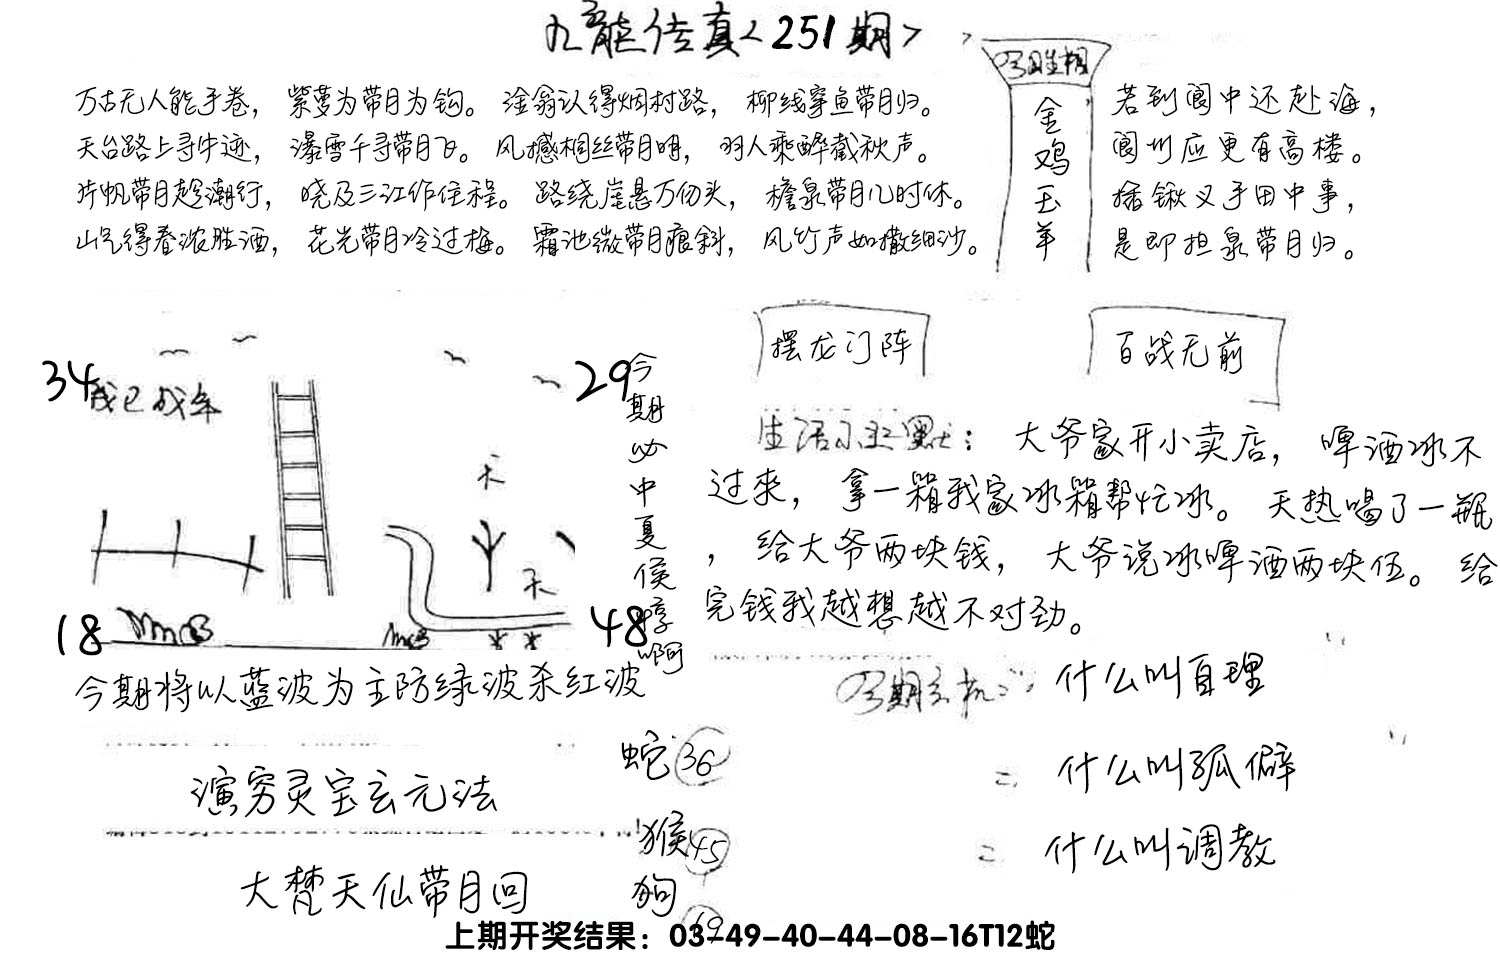 九龍传真<251期>
今期生相
金鸡玉羊
万古无人能手卷，紫萝为带月为钩。淦翁认得烟村路，柳线穿鱼带月归。
天台路上寻牛迹，瀑雪千寻带月飞。风撼桐丝带月明，羽人乘醉截秋声。
片帆带月趁潮行，晓及三江作住程。路绕崖悬万仞头，檐泉带月几时休。
山气得春浓胜酒，花光带月冷过梅。霜池微带月痕斜，风竹声如撒细沙。
若到阆中还赴海，
阆州应更有高楼。
插锹叉手田中事，
是即担泉带月归。
34
我已成年
29
天
天
18
48
今期必中夏侯惇啊
今期将以蓝波为主防绿波杀红波
摆龙门阵
百战无前
生活小幽默：大爷家开小卖店，啤酒冰不
过来，拿一箱我家冰箱帮忙冰。天热喝了一瓶
，给大爷两块钱，大爷说冰啤酒两块伍。给
完钱我越想越不对劲。
今期玄机：什么叫自理
二 什么叫孤僻
二 什么叫调教
演穷灵宝玄元法
大梵天仙带月回
蛇 36
猴 45
狗 19
上期开奖结果：03-49-40-44-08-16T12蛇